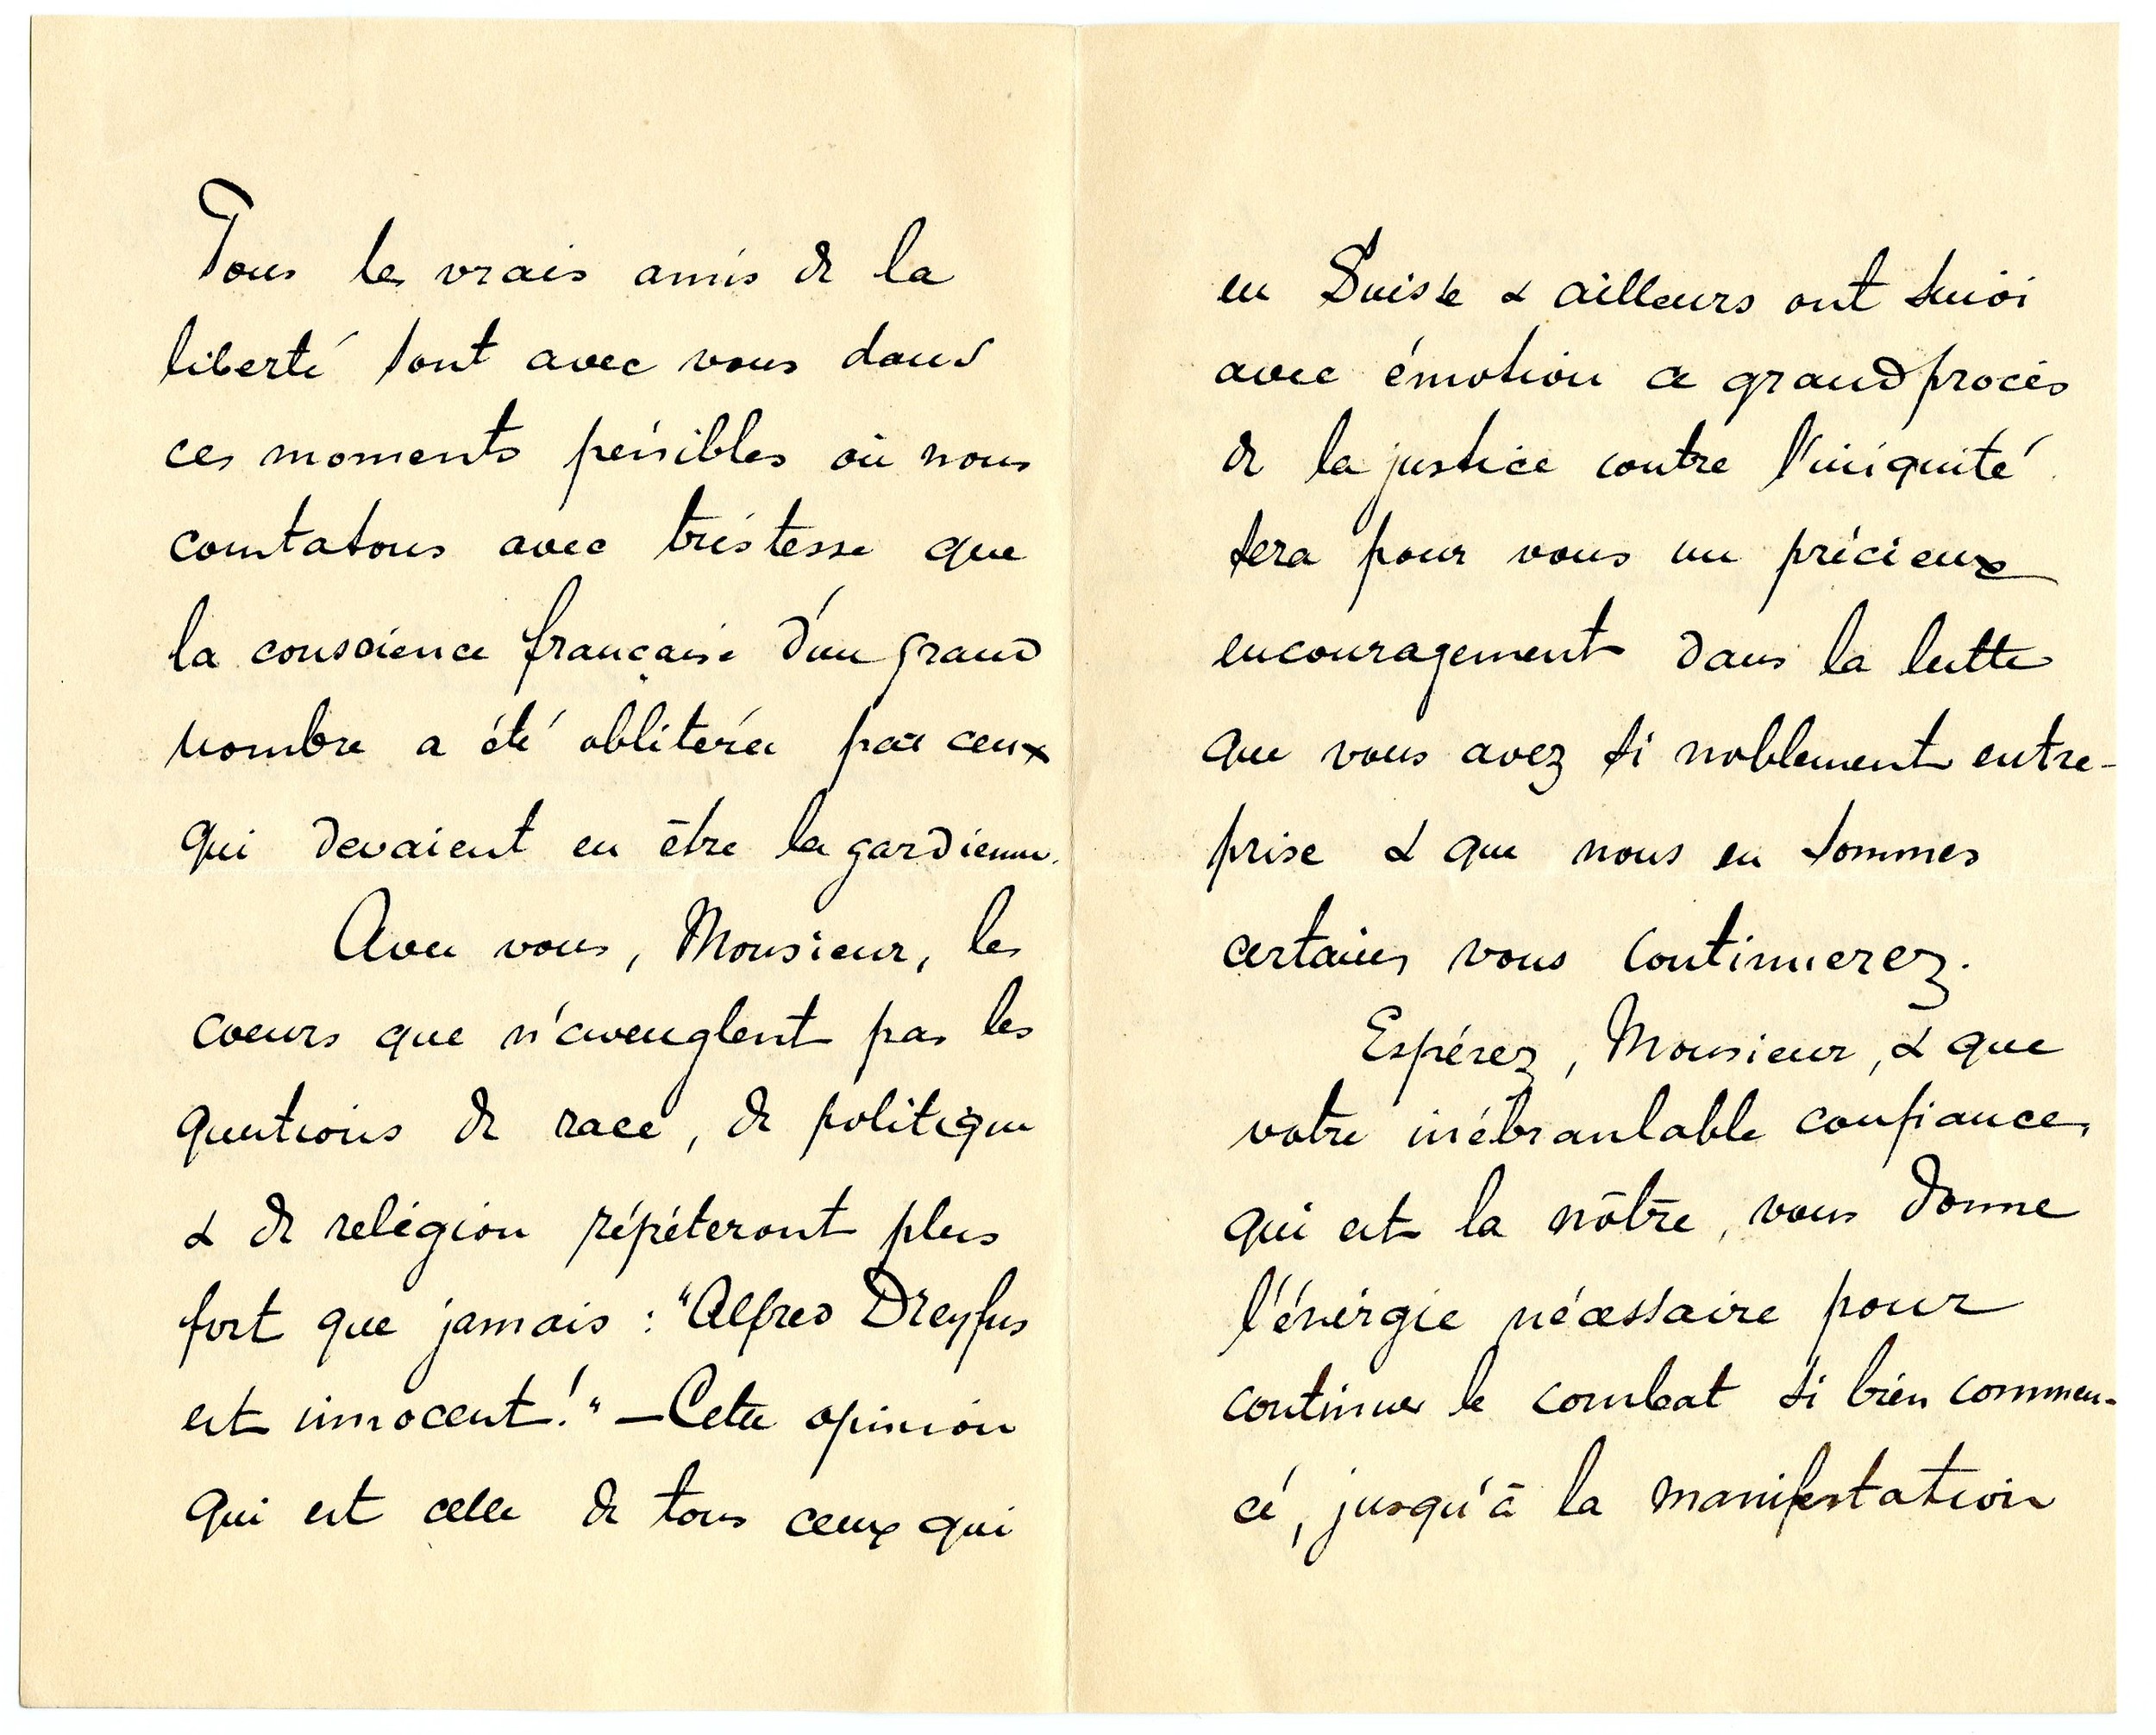 Tous les vrais amis de la
liberté sont avec vous dans
ces moments pénibles où nous
constatons avec tristesse que
la conscience française d'un grand
nombre a été oblitérée par ceux
qui devaient en être les gardiens.
Avec vous, Monsieur, les
coeurs que n'aveuglent pas les
questions de race, de politique
& de religion répéteront plus
fort que jamais : "Alfred Dreyfus
est innocent!" — Cette opinion
qui est celle de tous ceux qui
en Suisse & ailleurs ont suivi
avec émotion ce grand procès
de la justice contre l'iniquité
sera pour vous un précieux
encouragement dans la lutte
que vous avez si noblement entre-
prise & que nous en sommes
certains vous continuerez.
Espérez, Monsieur, & que
votre inébranlable confiance,
qui est la nôtre, vous donne
l'énergie nécessaire pour
continuer le combat si bien commen-
cé, jusqu'à la manifestation